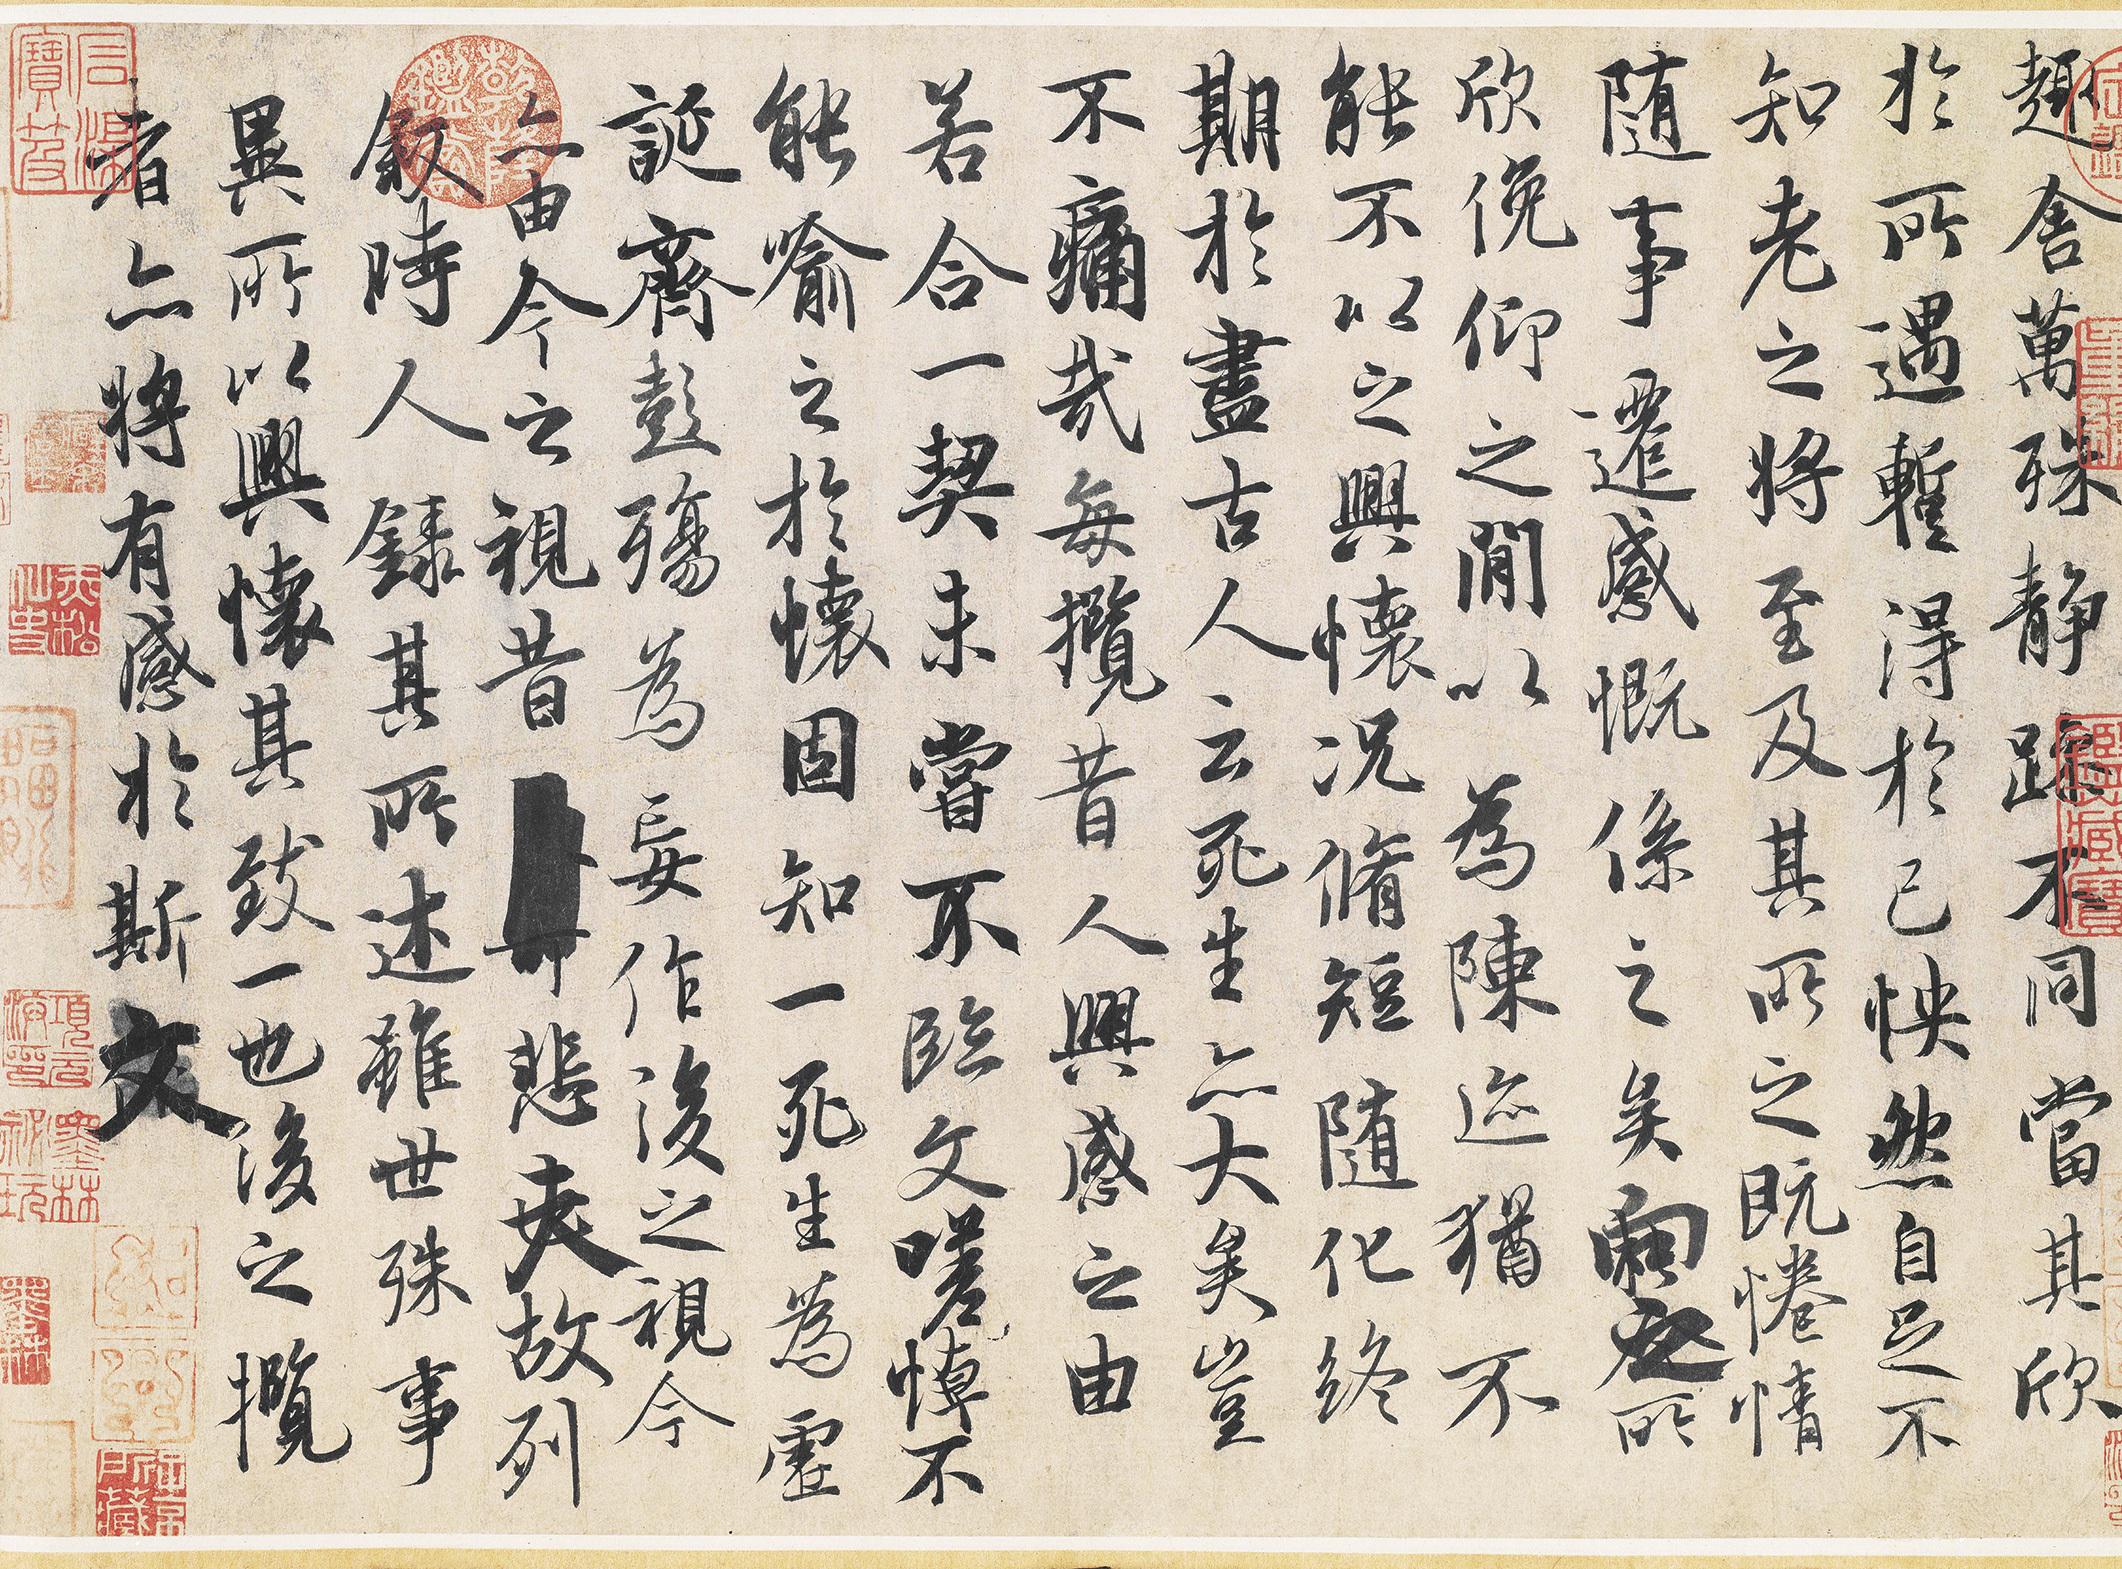 趣舍萬殊静躁不同當其欣
於所遇暫得於己怏然自足不
知老之將至及其所之既惓情
随事遷感慨係之矣向之所
欣俛仰之間以為陳迹猶不
能不以之興懷况脩短随化終
期於盡古人云死生亦大矣豈
不痛哉每攬昔人興感之由
若合一契未嘗不臨文嗟悼不
能喻之於懷固知一死生為虚
誕齊彭殤為妄作後之視今
亦由今之視昔悲夫故列
叙時人録其所述雖世殊事
異所以興懷其致一也後之攬
者亦將有感於斯文